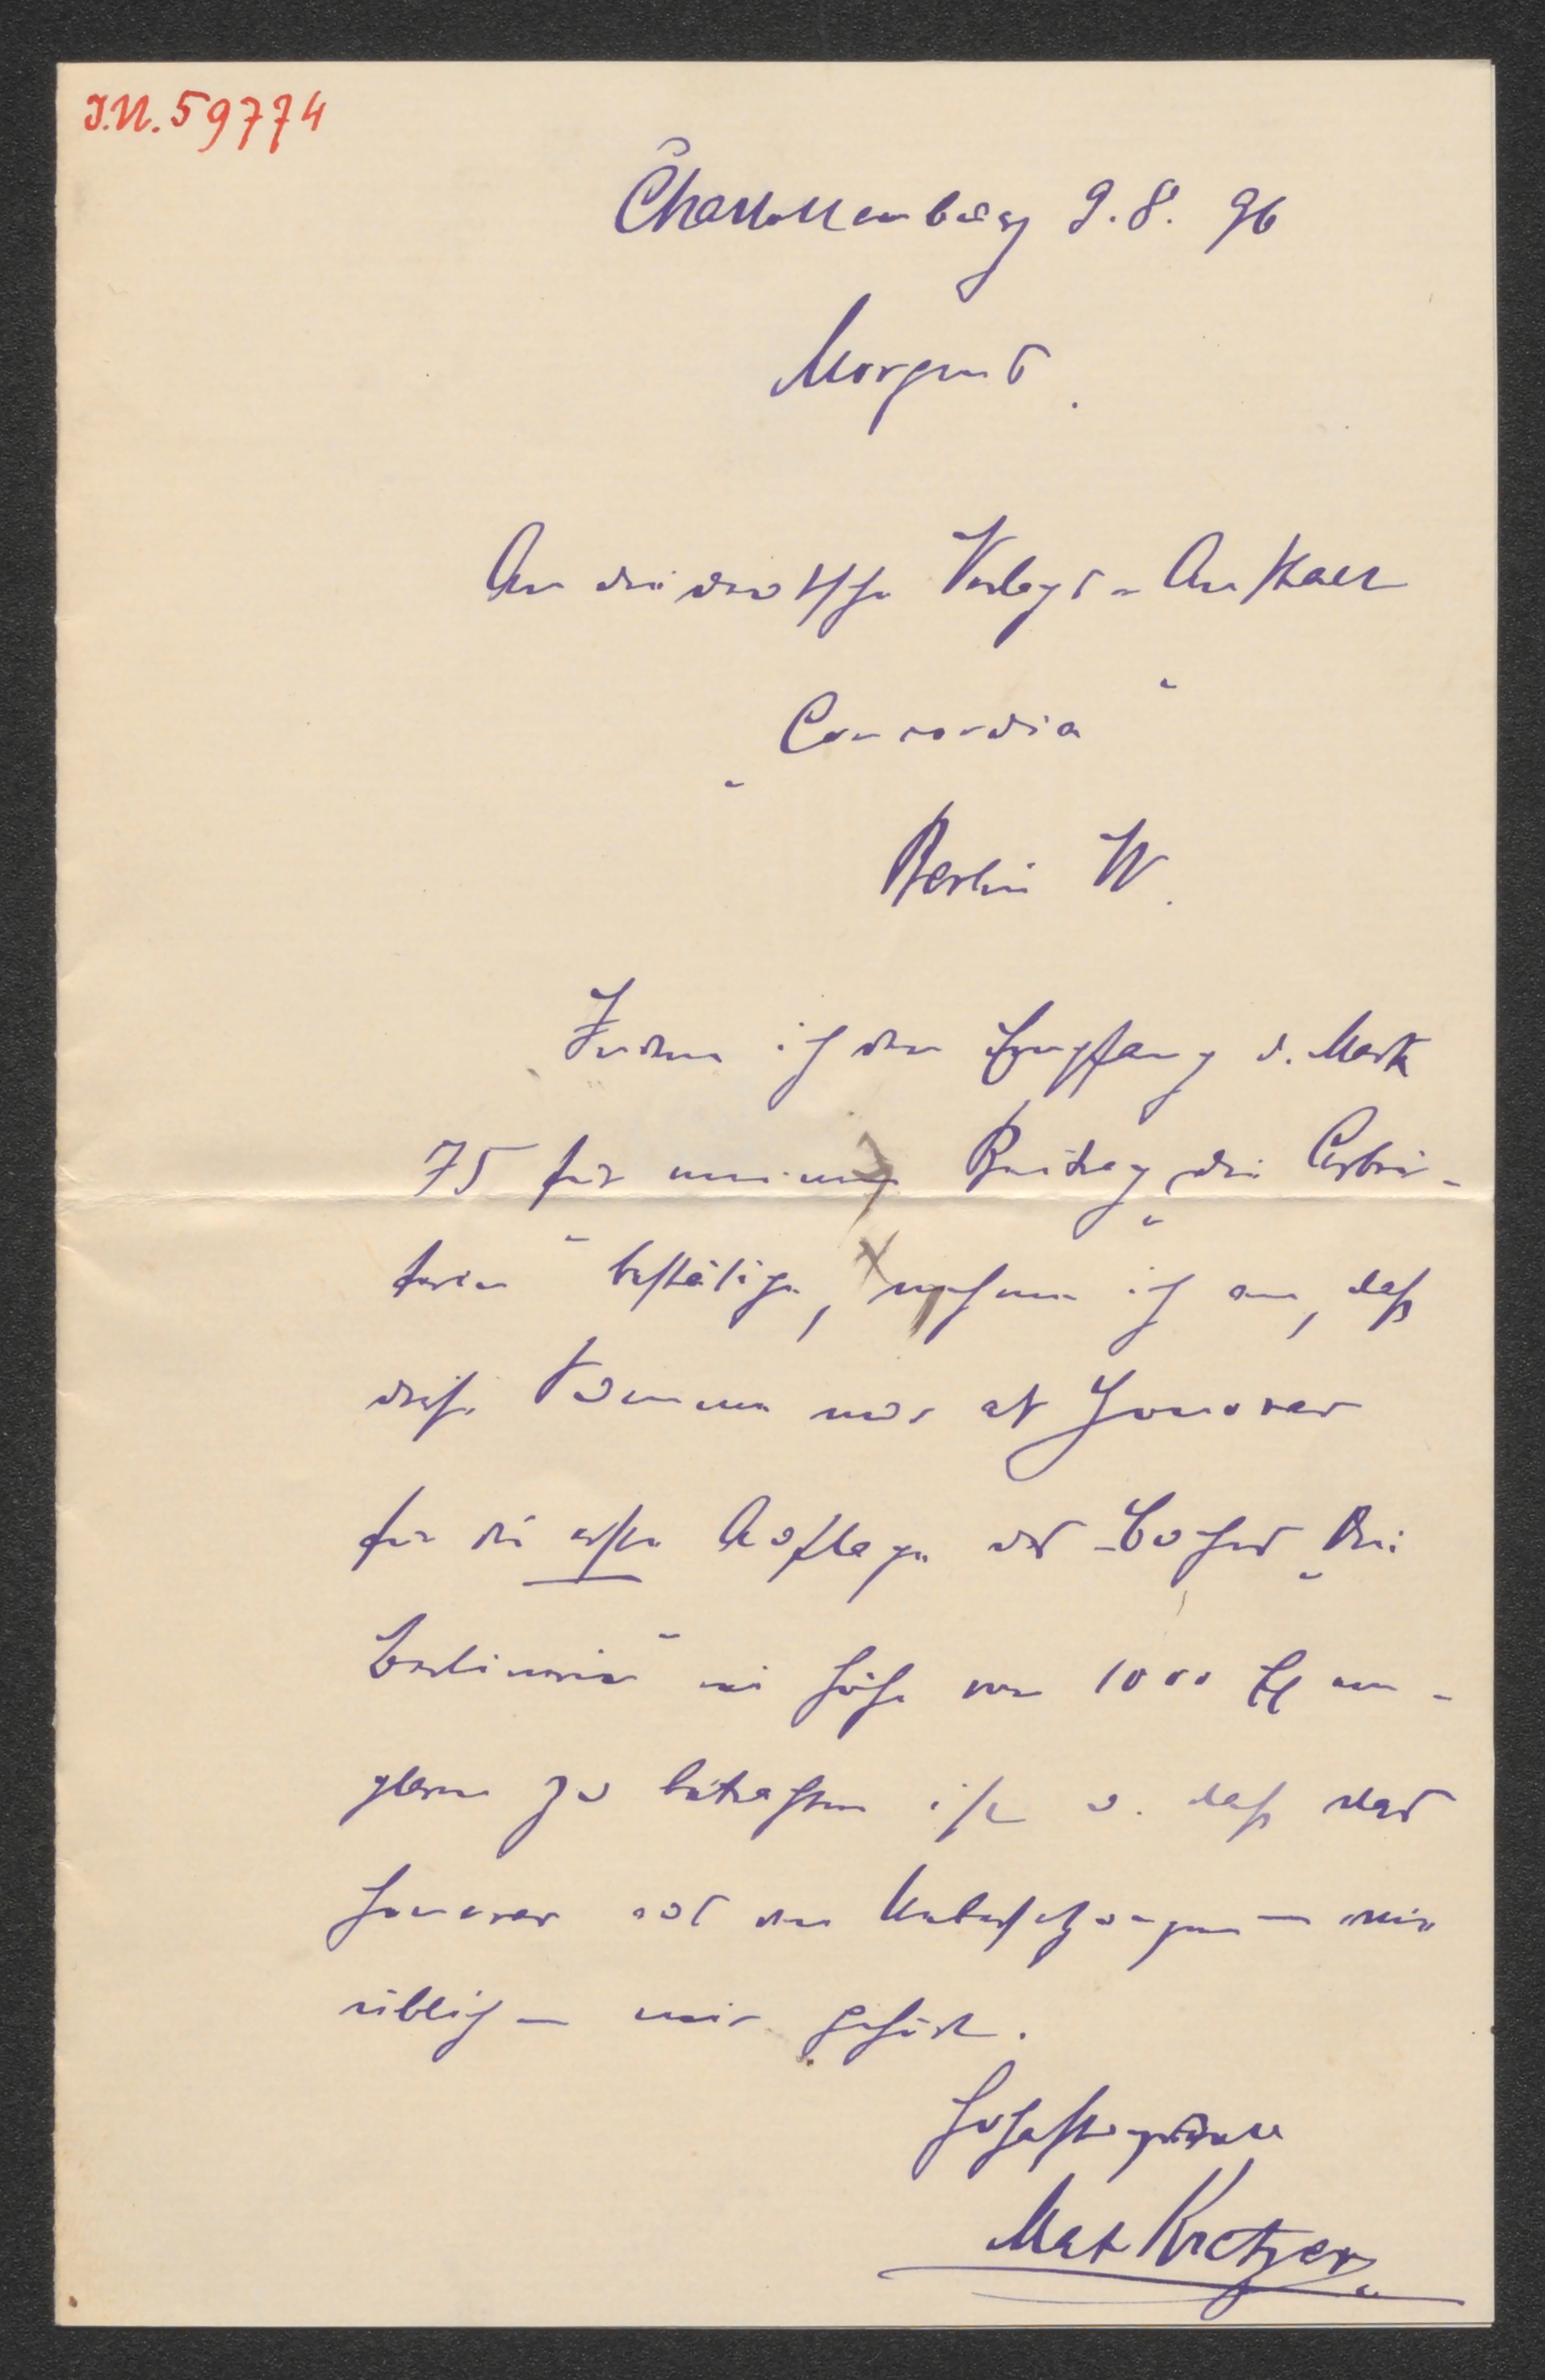 J.N. 59774
Charlottenburg 9.8.96
Morgens.
An die deutsche Verlags-Anstalt
„Concordia"
Berlin W.
Indem ich den Empfang v. Mark
75 für meinen Beitrag „die Arbei-
terin" bestätige, nehme ich an, daß
diese Summe nur als Honorar
für die erste Auflage des Buches „Die
Berlinerin" in Höhe von 1000 Ex em-
plaren zu betrachten ist u. daß das
Honorar aus den Uebersetzungen — wie
üblich — mir gehört.
Hochachtungsvoll
Max Kretzer.